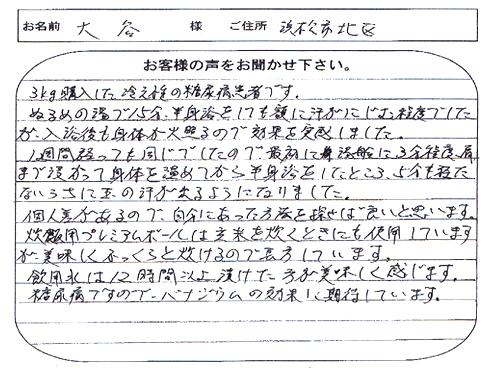 お名前 大谷 様 ご住所 浜松市北区
お客様の声をお聞かせ下さい。
3kg購入した冷え性の糖尿病患者です。
ぬるめの湯で15分、半身浴をしても額に汗がにじむ程度でした
が、入浴後も身体が火照るので効果を実感しました。
1週間経っても同じでしたので、最初に入浴時に3分程度、肩
まで浸かって身体を温めてから半身浴をしたところ、5分も経た
ないうちに玉の汗が出るようになりました。
個人差があるので、自分にあった方法を探せば良いと思います。
炊飯用プレミアムボールは玄米を炊くときにも使用しています
が美味しくふっくらと炊けるので重宝しています。
飲用水は12時間以上漬けた方が美味しく感じます。
糖尿病ですのでバナジウムの効果に期待しています。